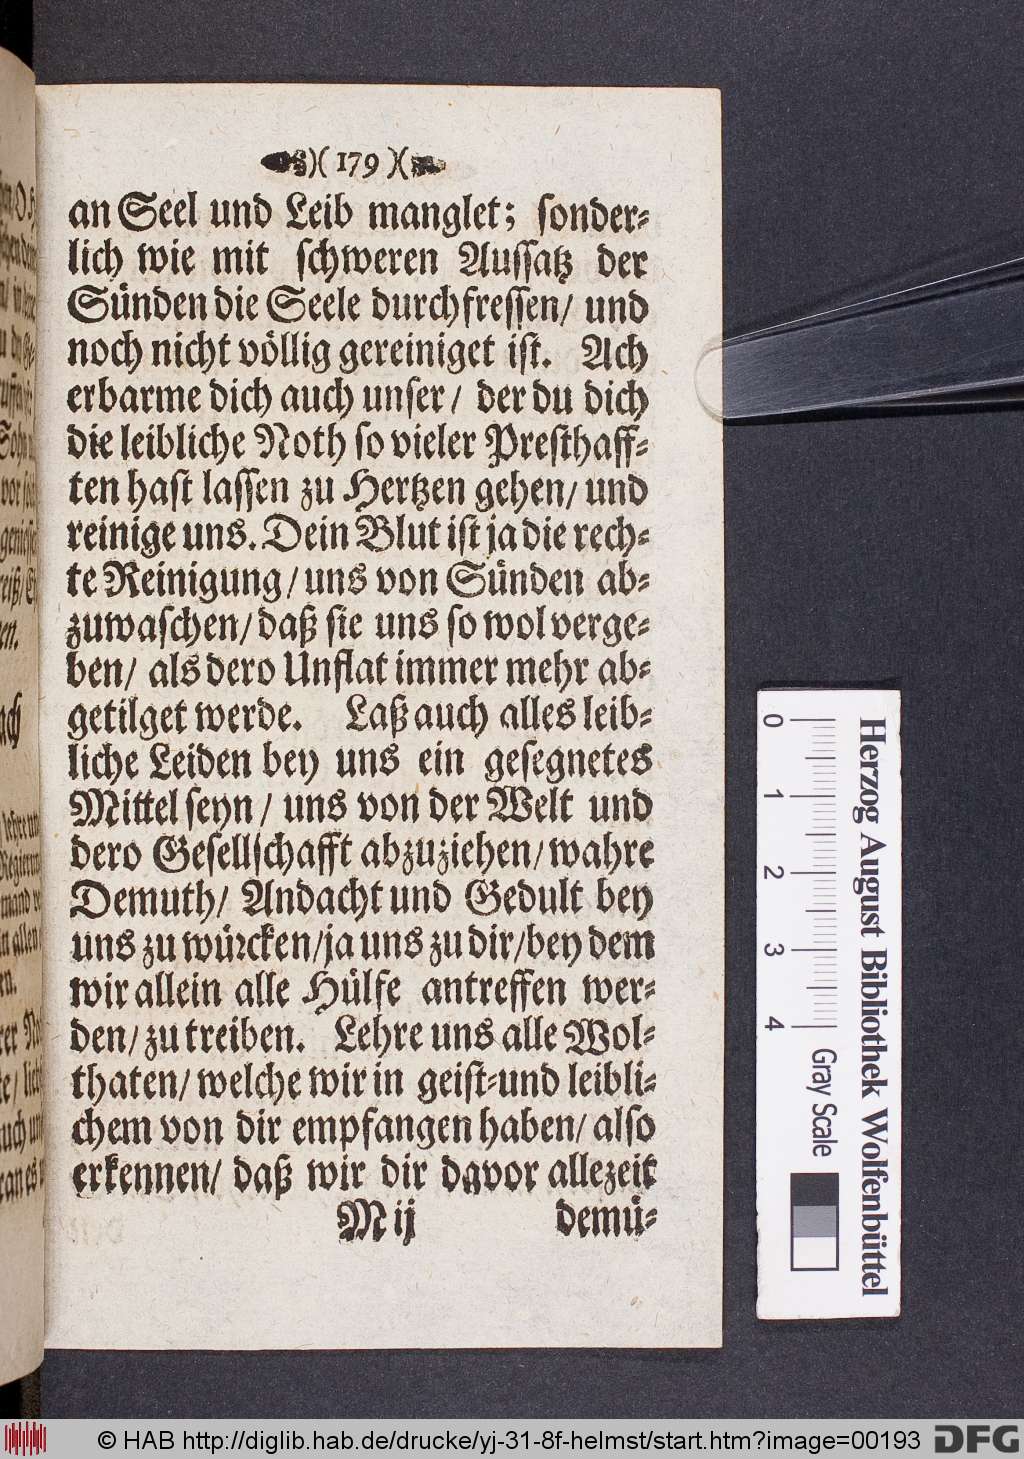 )( 179 )(
an Seel und Leib manglet; sonder⸗
lich wie mit schweren Aussatz der
Sünden die Seele durchfressen/ und
noch nicht völlig gereiniget ist. Ach
erbarme dich auch unser/ der du dich
die leibliche Noth so vieler Presthaff⸗
ten hast lassen zu Hertzen gehen/ und
reinige uns. Dein Blut ist ja die rech⸗
te Reinigung/ uns von Sünden ab⸗
zuwaschen/ daß sie uns so wol verge⸗
ben/ als dero Unflat immer mehr ab⸗
getilget werde. Laß auch alles leib⸗
liche Leiden bey uns ein gesegnetes
Mittel seyn/ uns von der Welt und
dero Gesellschafft abzuziehen/ wahre
Demuth/ Andacht und Gedult bey
uns zu würcken/ ja uns zu dir/ bey dem
wir allein alle Hülfe antreffen wer⸗
den/ zu treiben. Lehre uns alle Wol⸗
thaten/ welche wir in geist⸗und leibli⸗
chem von dir empfangen haben/ also
erkennen/ daß wir dir davor allezeit
M ij demü⸗
0 1 2 3 4
Gray Scale
Herzog August Bibliothek Wolfenbüttel
© HAB http://diglib.hab.de/drucke/yj-31-8f-helmst/start.htm?image=00193 DFG